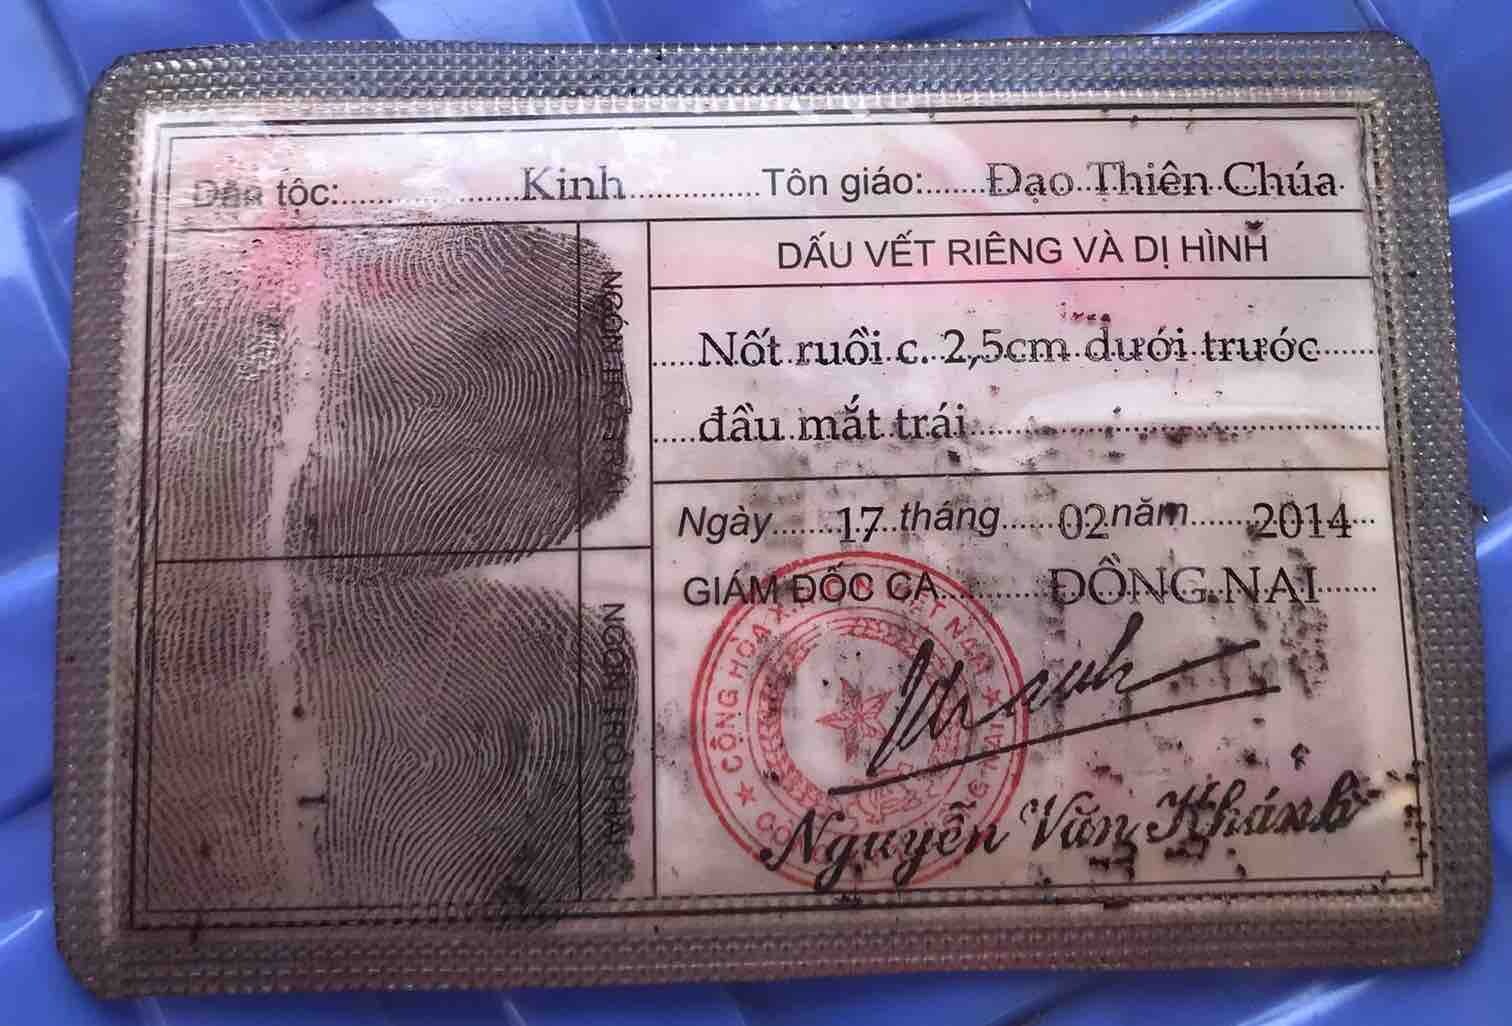 Dân tộc: Kinh Tôn giáo: Đạo Thiên Chúa
NGÓN TRỎ TRÁI
NGÓN TRỎ PHẢI
DẤU VẾT RIÊNG VÀ DỊ HÌNH
Nốt ruồi c. 2,5cm dưới trước
đầu mắt trái
Ngày 17 tháng 02 năm 2014
GIÁM ĐỐC CA ĐỒNG NAI
CỘNG HÒA X VIỆT NAM
Nguyễn Văn Khánh